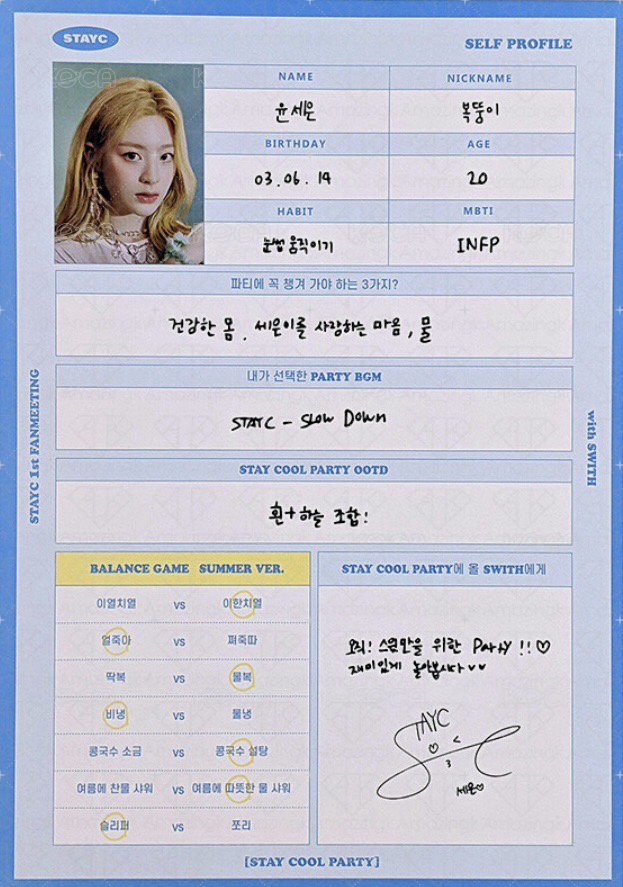 STAYC
SELF PROFILE
NAME
NICKNAME
윤세은
복뚱이
BIRTHDAY
AGE
03.06.14
20
HABIT
MBTI
눈썹 움직이기
INFP
파티에 꼭 챙겨 가야 하는 3가지?
건강한 몸, 세은이를 사랑하는 마음, 물
내가 선택한 PARTY BGM
STAYC - Slow Down
STAY COOL PARTY OOTD
흰+하늘 조합!
BALANCE GAME SUMMER VER.
이열치열 VS 이한치열
얼죽아 VS 쪄죽따
딱복 VS 물복
비냉 VS 물냉
콩국수 소금 VS 콩국수 설탕
여름에 찬물 샤워 VS 여름에 따뜻한 물 샤워
슬리퍼 VS 쪼리
STAY COOL PARTY에 올 SWITH에게
오직! 스윗만을 위한 Party!!♡
재미있게 놀아봅시다♥♥
STAYC
세은♡
STAYC 1st FANMEETING
with SWITH
[STAY COOL PARTY]